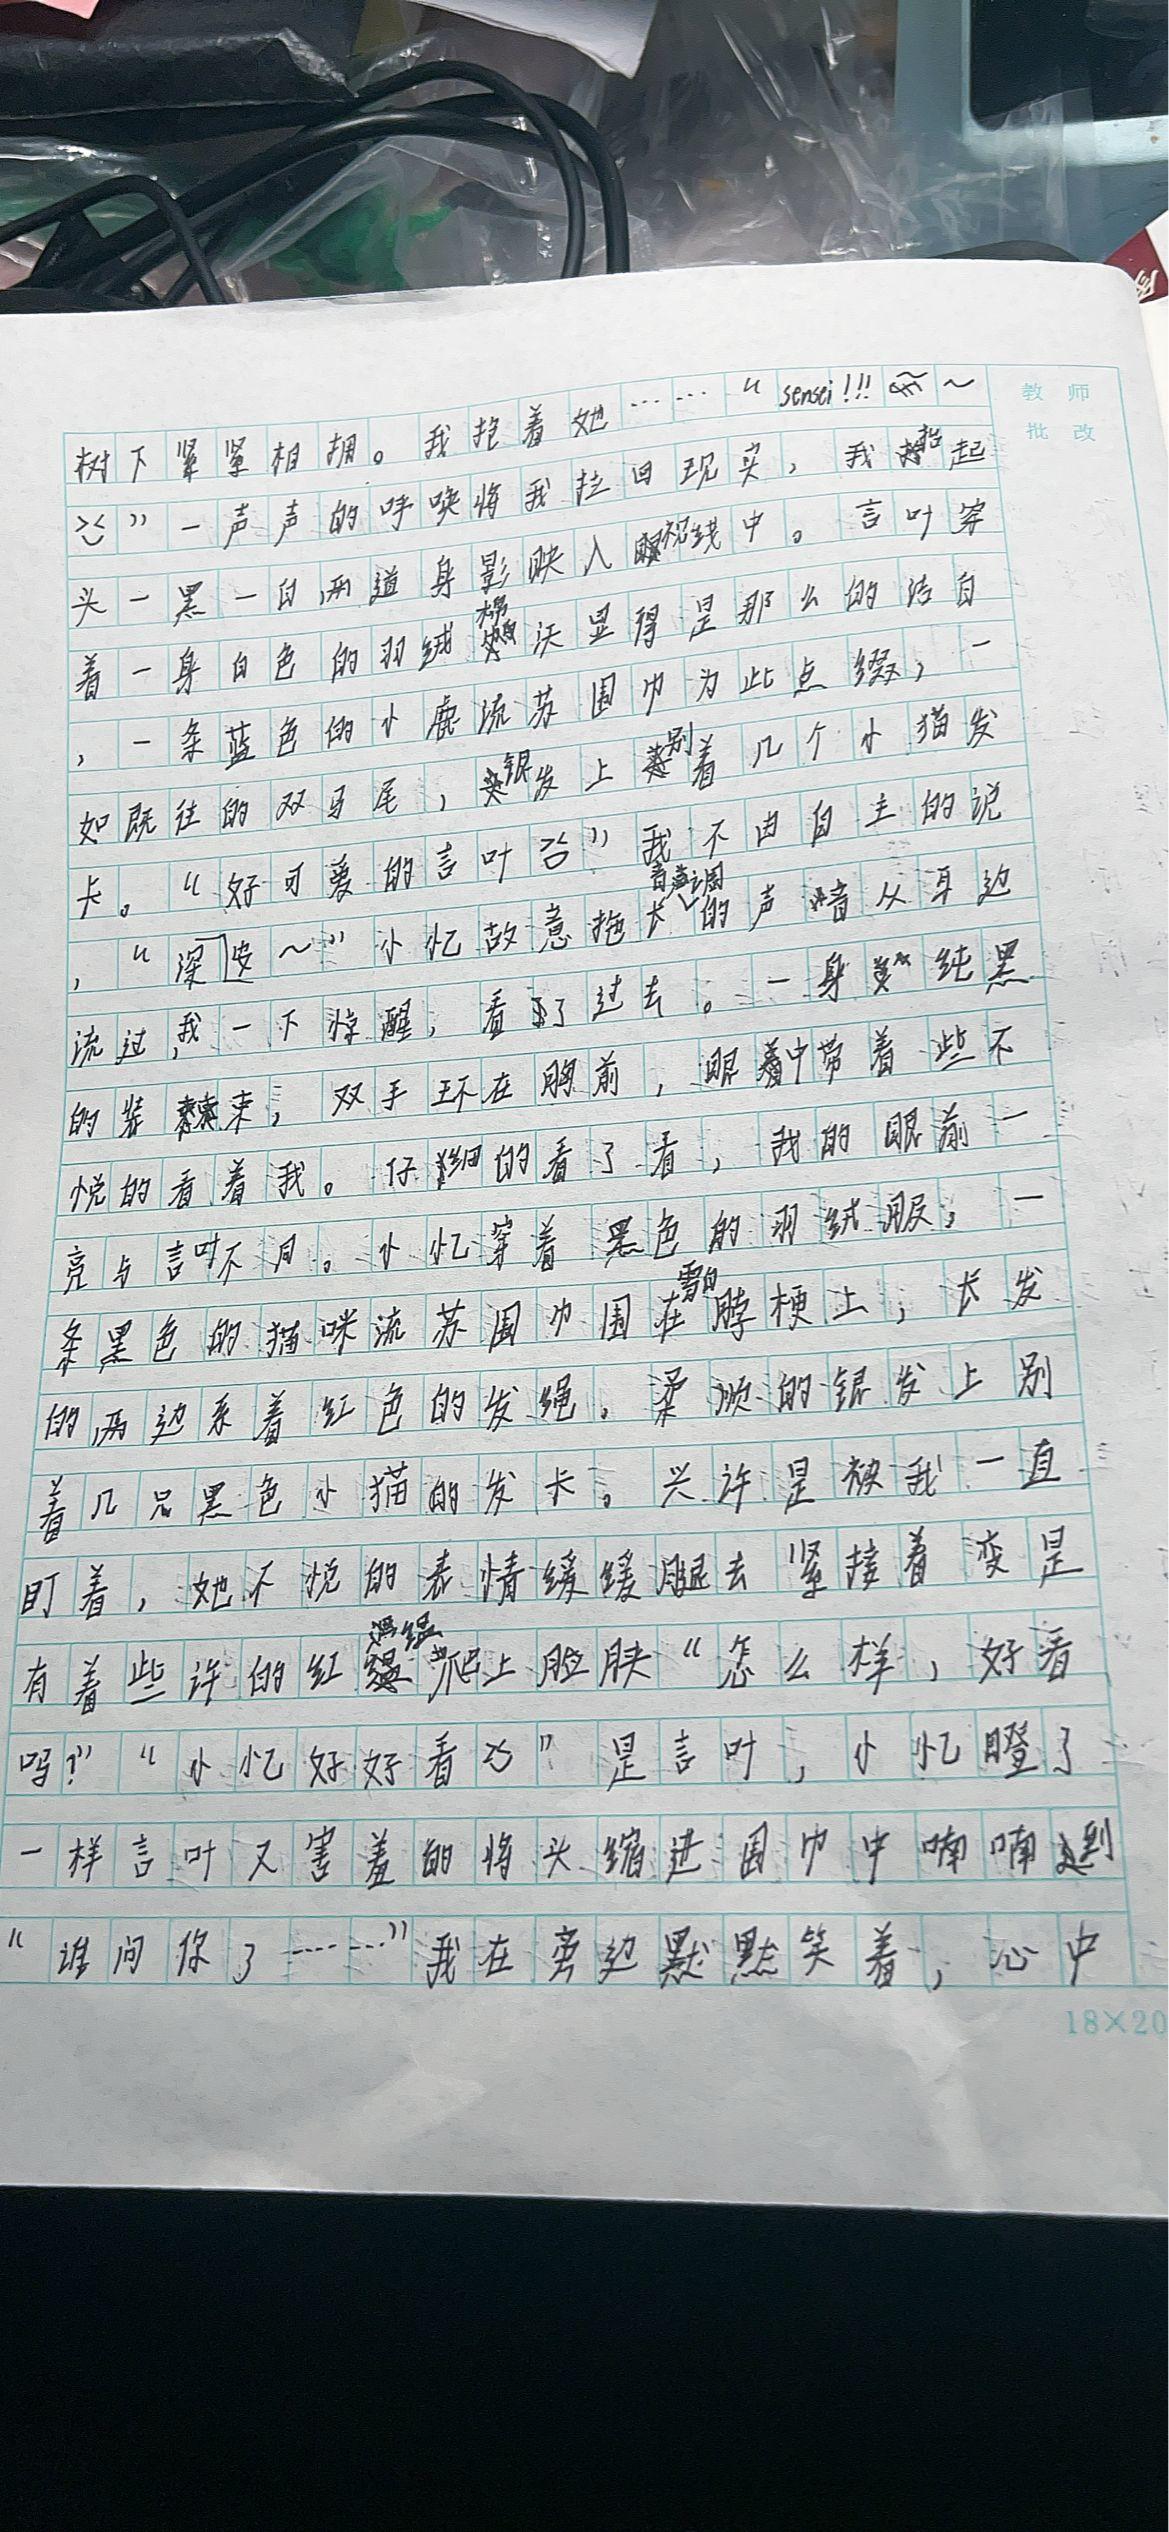 教师
批改
树下紧紧相拥。我抱着她……“sensei!!!～
”一声声的呼唤将我拉回现实，我抬起
头一黑一白两道身影映入视线中。言叶穿
着一身白色的羽绒沃显得是那么的洁白
，一条蓝色的小鹿流苏围巾为此点缀，一
如既往的双马尾，银发上别着几个小猫发
卡。“好可爱的言叶”我不由自主的说
，“深 ～”小忆故意拖长音调的声音从耳边
流过，我一下惊醒，看了过去。一身纯黑
的装束，双手环在胸前，眼中带着些不
悦的看着我。仔细的看了看，我的眼前一
亮与言叶不同。小忆穿着黑色的羽绒服，一
条黑色的猫咪流苏围巾围在雪白脖梗上，长发
的两边系着红色的发绳。柔顺的银发上别
着几只黑色小猫的发卡。兴许是被我一直
盯着，她不悦的表情缓缓腿去紧接着变是
有着些许的红温爬上脸胅“怎么样，好看
吗？”“小忆好好看”是言叶，小忆瞪了
一样言叶又害羞的将头缩进围巾中喃喃到
“谁问你了……”我在旁边默默笑着，心中
18×20